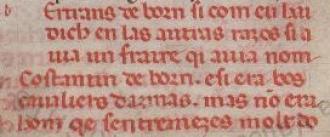 b Ertrans de born si com eu lau
dich en las autras razos si a
uia un fraire qi auia nom
Costantin de born. e si era bos
caualiers darmas. mas no era
hom qe sentremezes molt do